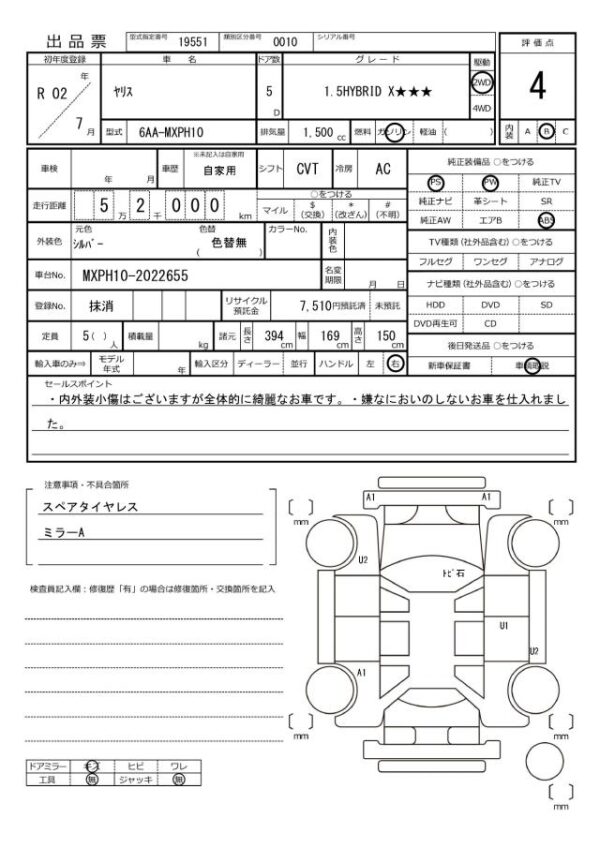 出品票 型式指定番号 19551 類別区分番号 0010 シリアル番号
評価点
4
初年度登録 車名 ドア数 グレード 駆動
R 02 年 ヤリス 5 D 1.5HYBRID X★★★ 2WD
4WD
7 月 型式 6AA-MXPH10 排気量 1,500 cc 燃料 ガソリン 軽油 ( ) 内装 A B C
車検 年 月 車歴 ※未記入は自家用 自家用 シフト CVT 冷房 AC
走行距離 5 万 2 千 0 0 0 km ○をつける
マイル $(交換) *(改ざん) #(不明)
外装色 元色 シルバー 色替 色替無 ( ) カラーNo. 内装色
車台No. MXPH10-2022655 名変期限 月 日
登録No. 抹消 リサイクル預託金 7,510円預託済 未預託
定員 5( ) 人 積載量 kg 諸元 長さ 394 cm 幅 169 cm 高さ 150 cm
輸入車のみ⇒ モデル年式 年 輸入区分 ディーラー 並行 ハンドル 左 右
純正装備品 ○をつける
PS PW 純正TV
純正ナビ 革シート SR
純正AW エアB ABS
TV種類(社外品含む)○をつける
フルセグ ワンセグ アナログ
ナビ種類(社外品含む)○をつける
HDD DVD SD
DVD再生可 CD
後日発送品 ○をつける
新車保証書 車輌取説
セールスポイント
・内外装小傷はございますが全体的に綺麗なお車です。・嫌なにおいのしないお車を仕入れまし
た。
注意事項・不具合箇所
スペアタイヤレス
ミラーA
検査員記入欄：修復歴「有」の場合は修復箇所・交換箇所を記入
A1 A1
[ ] mm [ ] mm
U2 トビ石
U1
U2
A1
[ ] mm [ ] mm
[ ] mm
ドアミラー キズ ヒビ ワレ
工具 無 ジャッキ 無